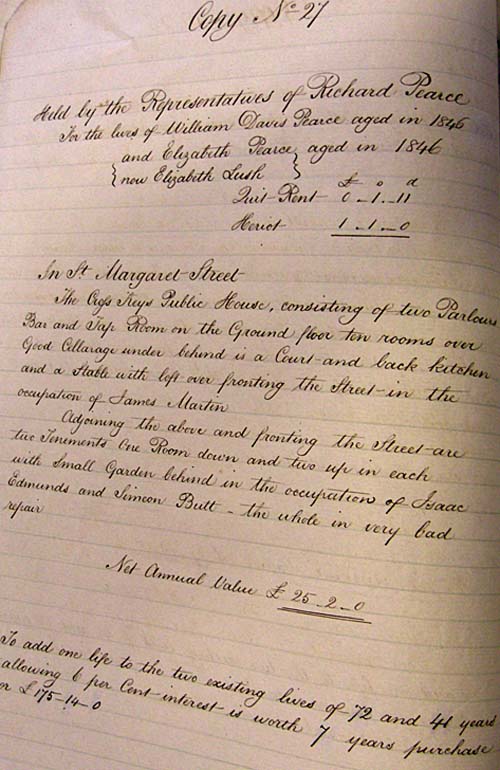 Copy No 27
Held by the Representatives of Richard Pearce
For the lives of William Davis Pearce aged in 1846
and Elizabeth Pearce } aged in 1846
{ now Elizabeth Lush }
£ s d
Quit-Rent 0-1-11
Heriot 1-1-0
In St. Margaret Street
The Cross Keys Public House, consisting of two Parlours
Bar and Tap Room on the Ground floor ten rooms over
Good Cellarage under behind is a Court and back kitchen
and a Stable with loft over fronting the Street in the
occupation of James Martin
Adjoining the above and fronting the Street are
two Tenements One Room down and two up in each
with Small Garden behind in the occupation of Isaac
Edmunds and Simeon Butt - the whole in very bad
repair
Net Annual Value £ 25-2-0
To add one life to the two existing lives of 72 and 41 years
allowing 6 per Cent interest is worth 7 years purchase
or £175-14-0